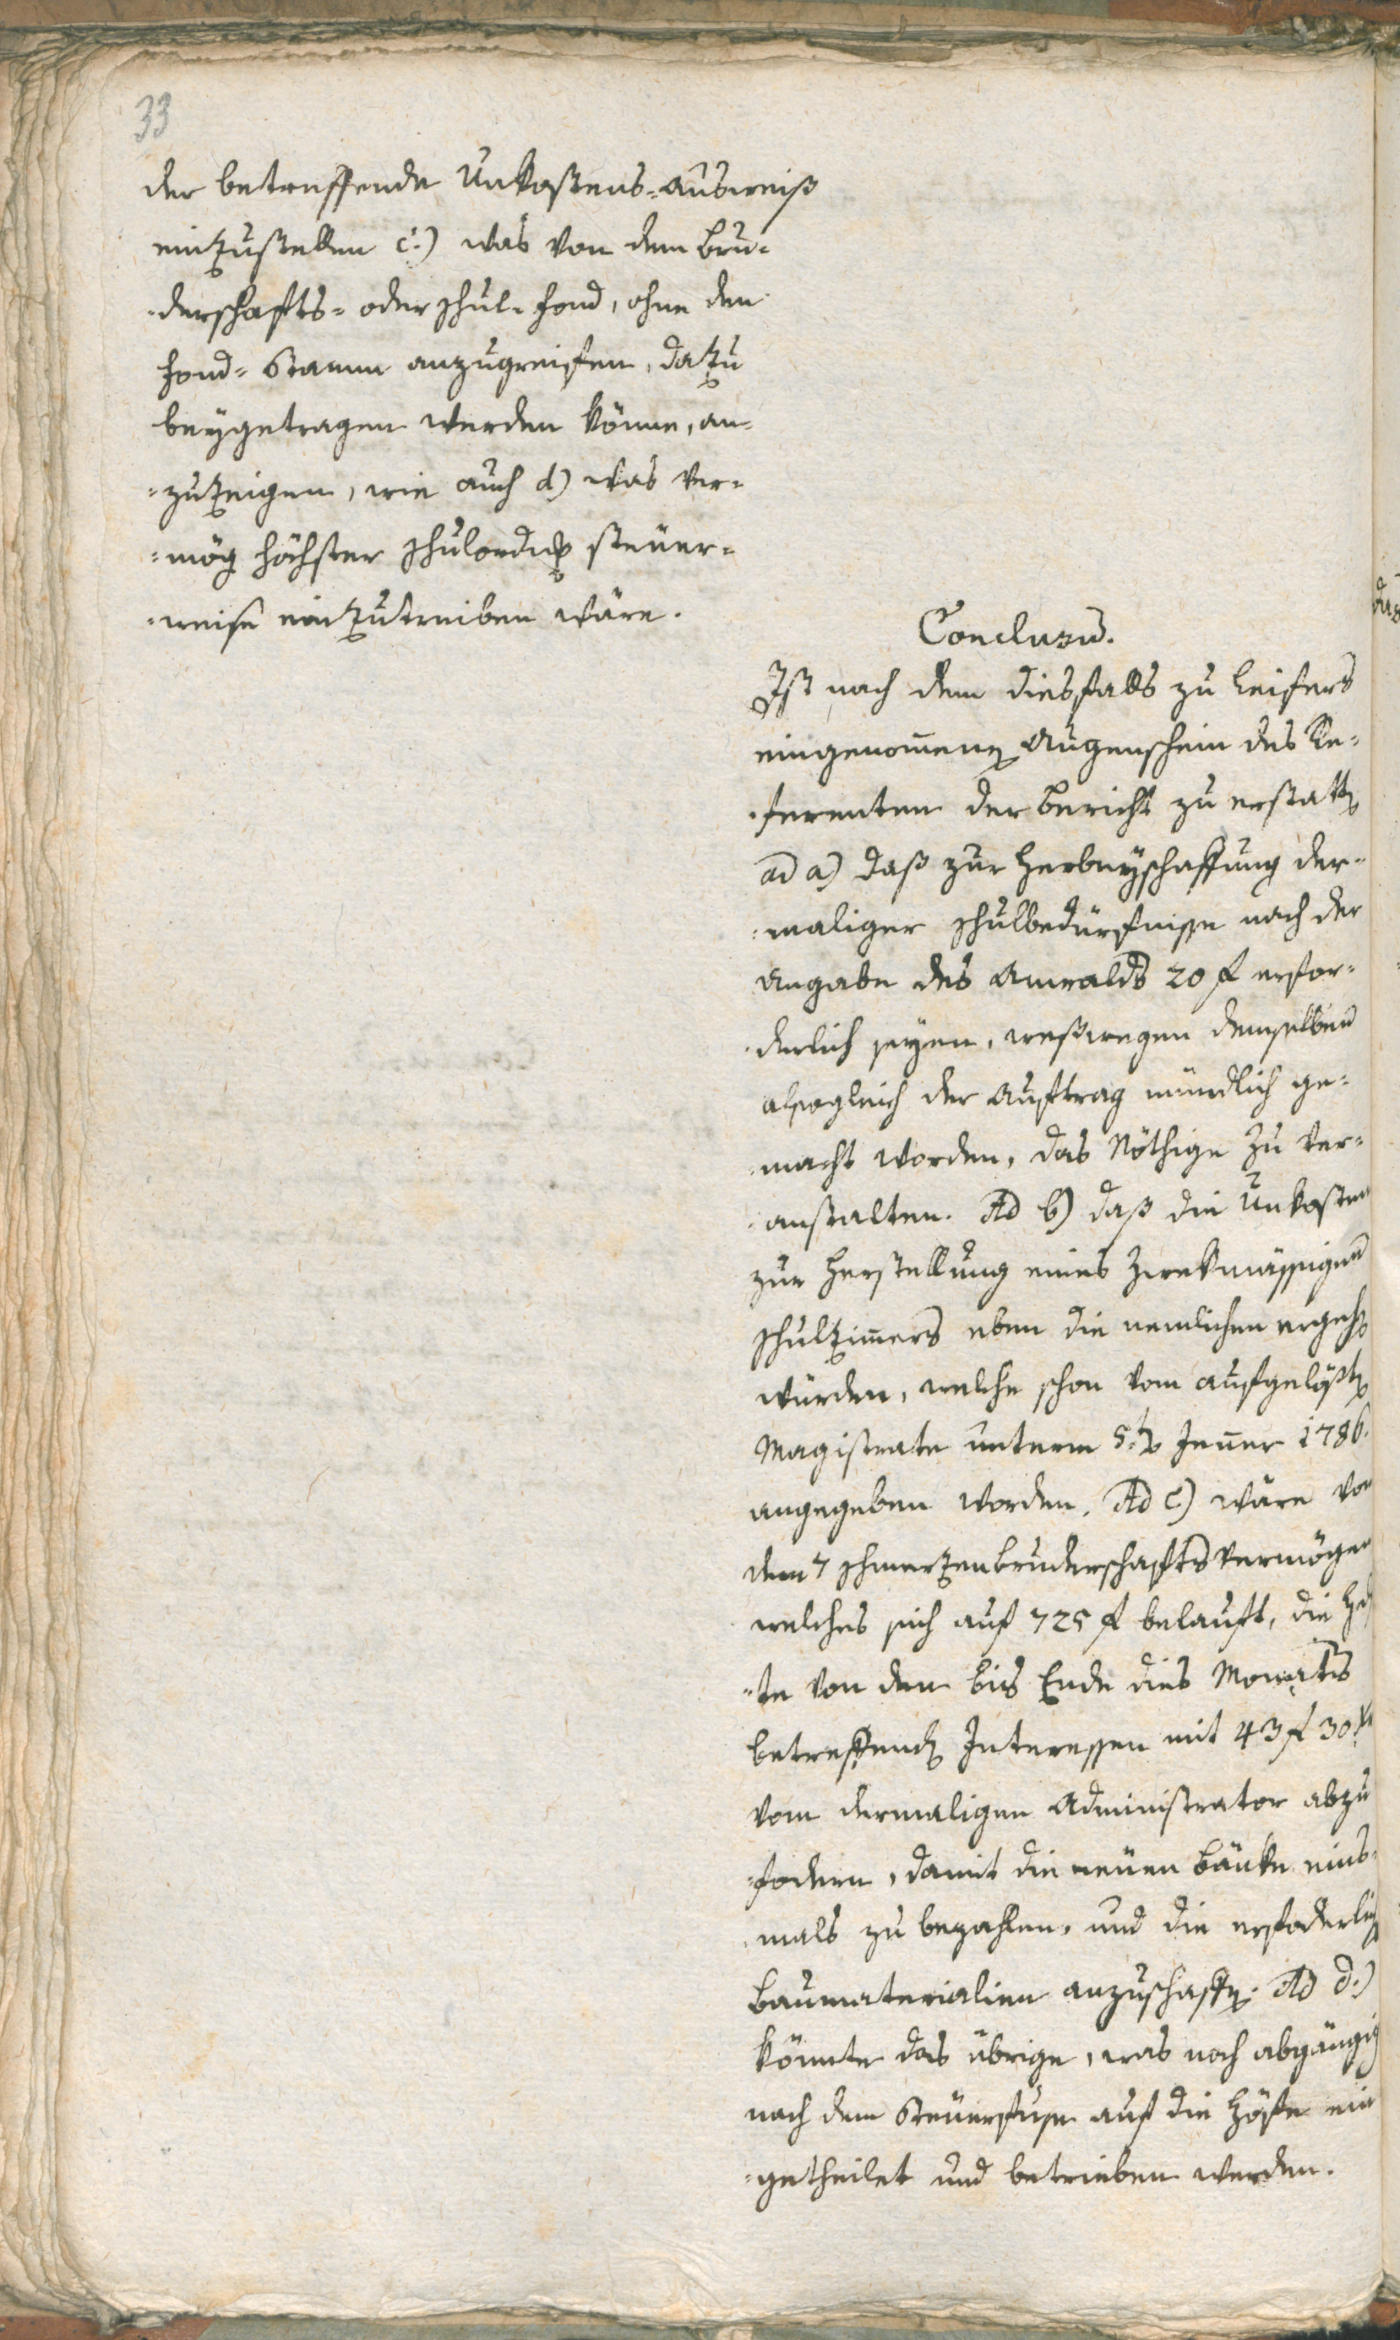 33
der betreffende Unkostens-Ausweiß
einzustellen c.) was von dem Bru-
-derschafts- oder Schul-Fond, ohne den
Fond-Stamm anzugreifen, dazu
beygetragen werden könne, an-
-zuzeigen, wie auch d) was ver-
-mög höchster Schulordng steuer-
-weise einzutreiben wäre.
Conclusum.
Ist nach dem diesfalls zu Leifers
eingenommenen Augenschein des Re-
-ferenten der Bericht zu erstatten
ad a) daß zur Herbeyschaffung der-
-maliger Schulbedürfnisse nach der
Angabe des Anwalds 20 f erfor-
-derlich seyen, weßwegen demselben
alsogleich der Auftrag mündlich ge-
-macht worden, das Nöthige zu ver-
-anstalten. Ad b) daß die Unkosten
zur Herstellung eines zwekmässigen
Schulzimmers eben die nemlichen ergehen
würden, welche schon vom aufgelößten
Magistrate unterm 5.ten Jenner 1786.
angegeben worden. Ad c) wäre von
dem 7 Schmerzenbruderschaftsvermögen
welches sich auf 725 f belauft, die
-te von den bis Ende dies Monats
betreffenden Interessen mit 43 f 30 xr
vom dermaligen Administrator abzu
-fodern, damit die neuen Bänke eins-
-mals zu bezahlen, und die erfoderlichen
Baumaterialien anzuschaffen. Ad d.)
könnte das übrige, was noch abgängig
nach dem Steuerfuße auf die Höfe ein
-getheilet und betrieben werden.